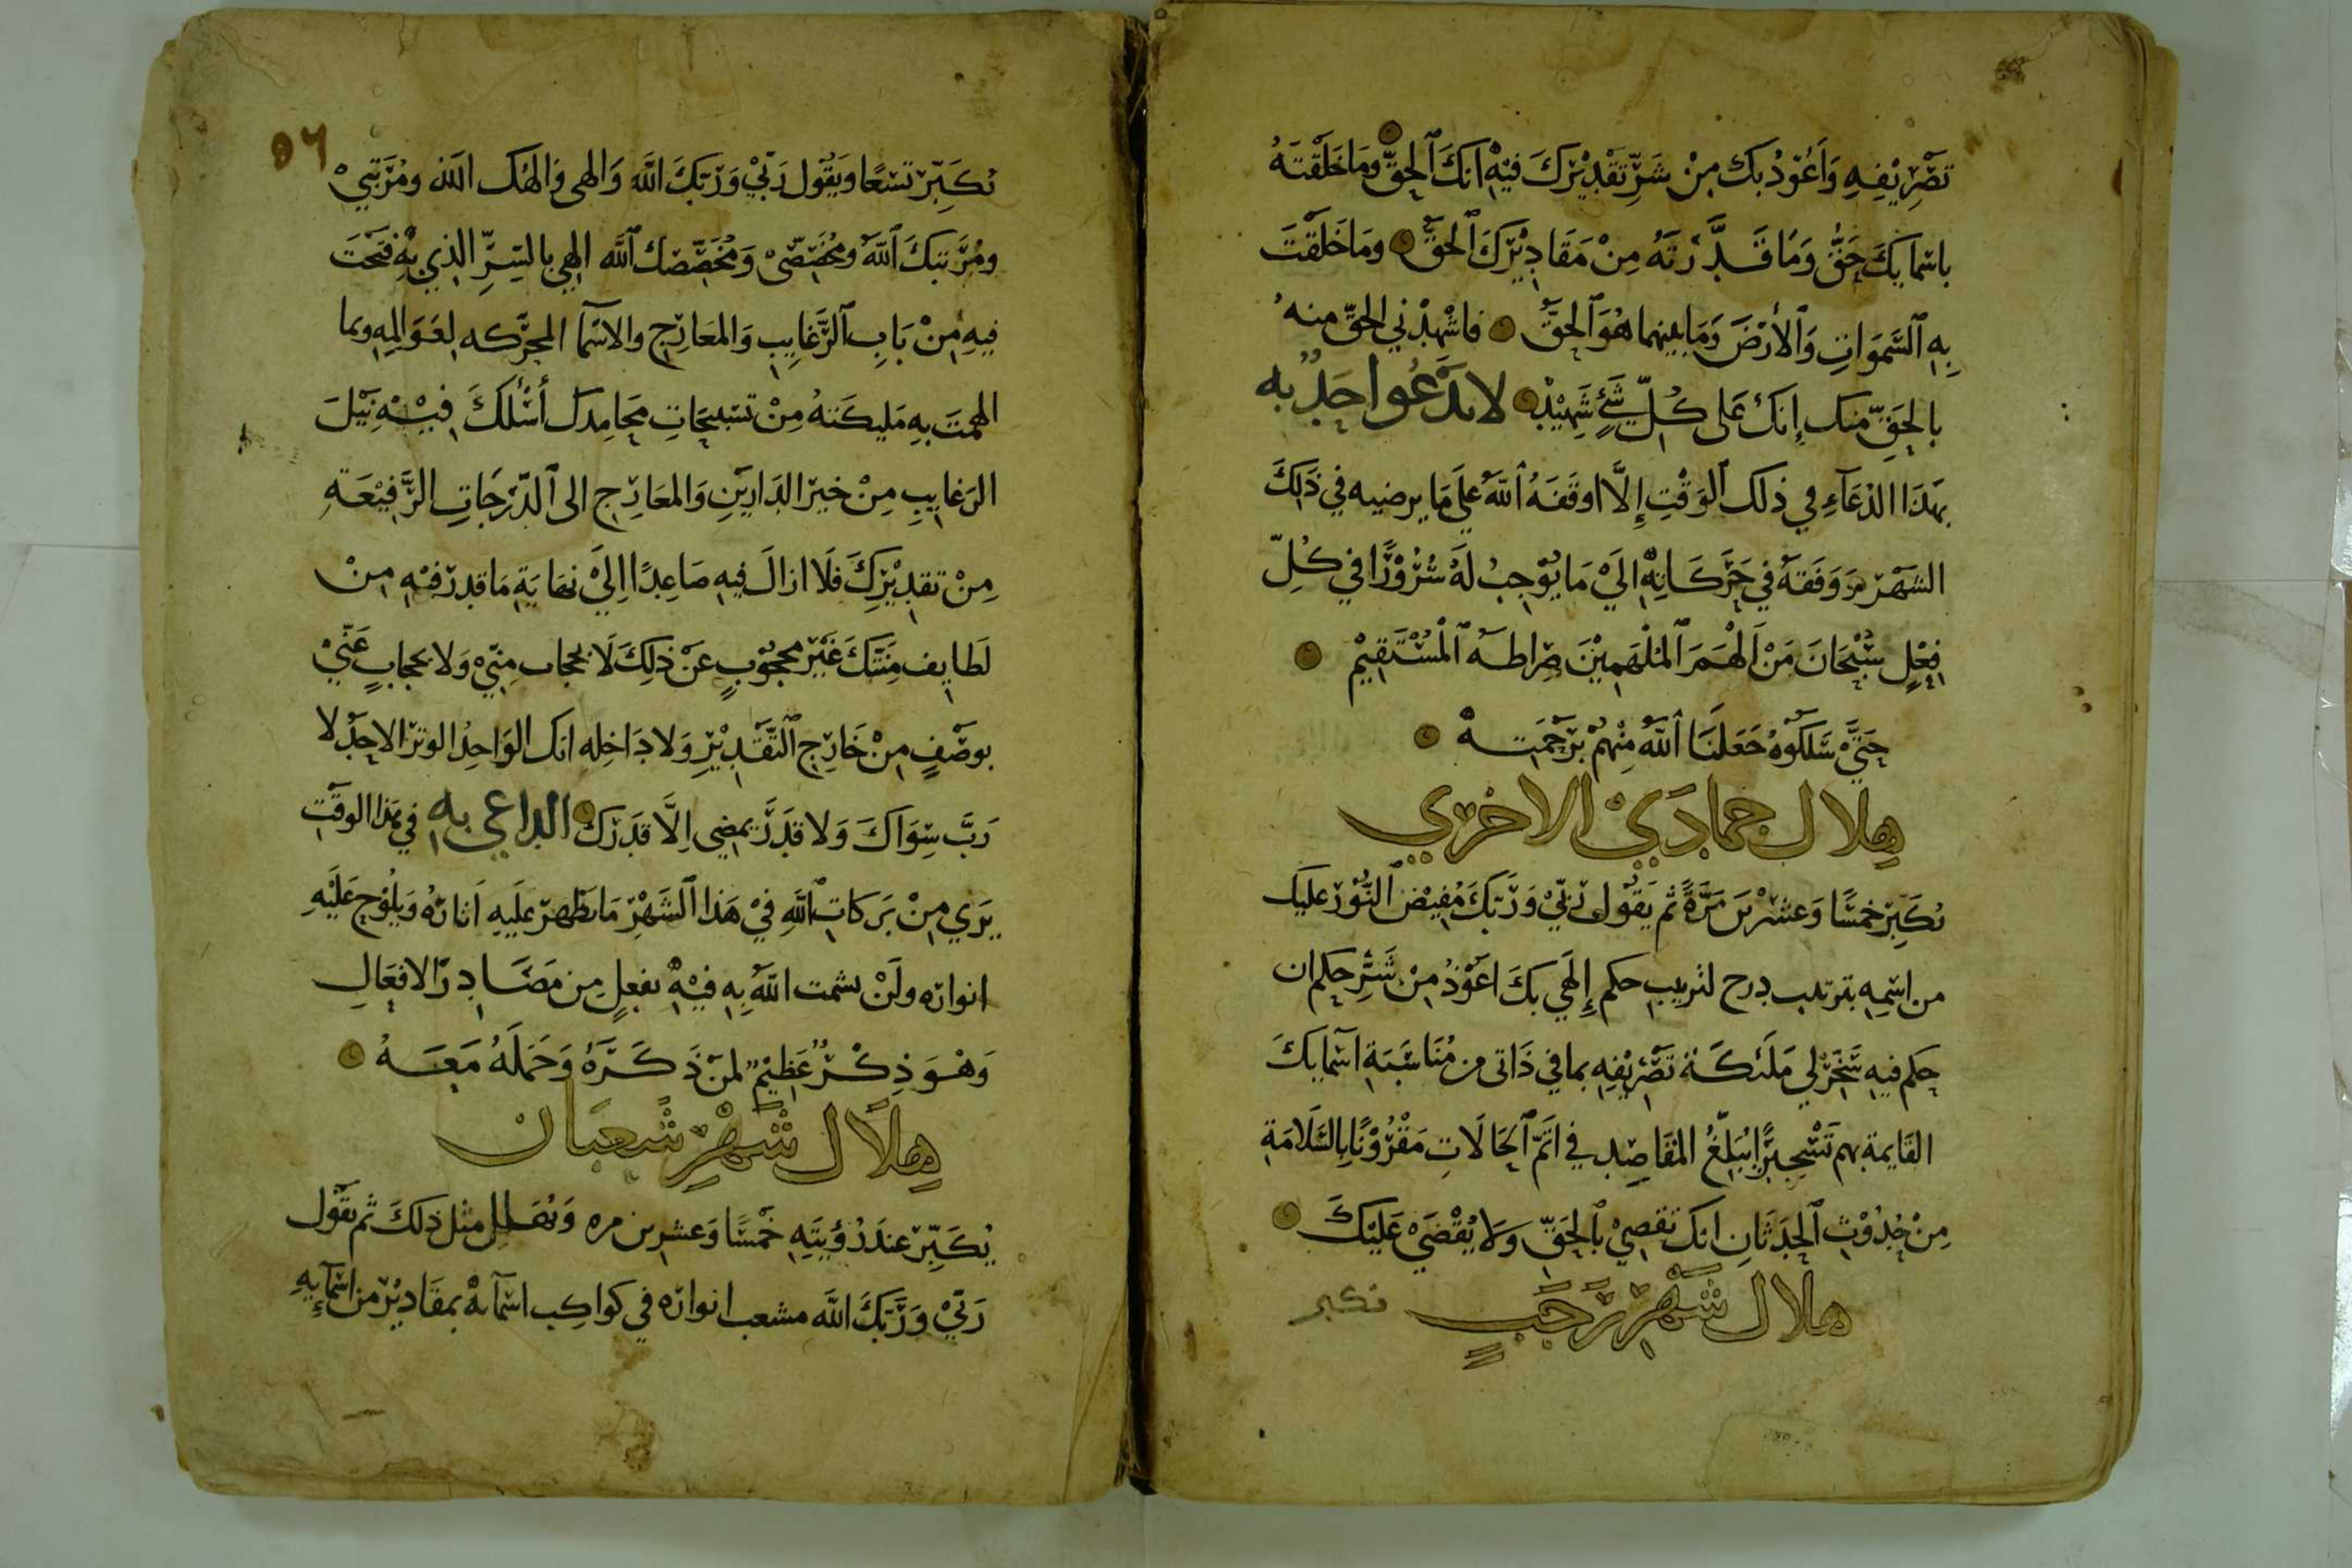 تَصْرِيْفِهِ وَاَعُوْذُ بكَ مِنْ شَرِّ تَقْدِيْرِكَ فيْهِ انكَ ٱلحَقُّ ومَا خَلَقْتَهُ
باسْمايكَ حَقٌّ وَمَا قَدَّرْتَه مِنْ مَقَادِيْرِكَ ٱلحَقُّ ومَا خَلَقْتَ
بِهِ ٱلسَّمَوَاتِ وَٱلأرْضَ وَمَا بينهما هُوَ ٱلحَقُّ فاشْهِدْني الحَقّ منهُ
بالحَقِّ منك إنكَ عَلى كُلِّ شَئٍ شَهِيْدٌ لا يَدْعُوا احَدٌ به
بهَذَا الدُعَآءِ في ذلك ٱلوَقْتِ إلَّا اوقَفَهُ ٱللهُ علَى مَا يرضيه في ذَلِكَ
الشَهْرِ وَوَفَقَهُ في حَرَكَاتِهِ الَى مَا يُوْجِبُ لَهُ سُرُوْرًا في كُلِّ
فِعْلٍ سُبْحَانَ مَنْ اَلْهَمَ ٱلمُلْهَمِيْنَ صِرَاطَهُ ٱلْمُسْتَقِيْم
حَتَّى سَلَكُوْهُ جَعَلَنَا ٱللهُ مِنْهُمْ برَحْمَتِهْ
هلال جمادَيْ الاخري
تُكَبِّرْ خَمسًا وَعشرْينَ مَرَّةً ثم يَقُوْل رَبّيْ وَرَبّكَ مُفِيْضُ ٱلنُّوْرِ عليَك
من اسْمِهِ بترتيب درج لترتيب حكم إلَهي بكَ اعُوْذُ مِنْ شَرِّ حكم ان
حكم فيهِ سَخِّرْ لي مَلَئكَةَ تَصْرِيْفِهِ بما في ذَاتى من مُنَاسَبَةِ اسْمَايكَ
القَايمةِ بهم تَسْخِيْرًا يُبَلِّغُ المَقَاصِدِ في اتَمّ ٱلحَالَاتِ مَقْرُوْنًا بالسَّلَامَةِ
مِنْ حُدُوْثِ ٱلحَدَثَانِ انكَ تَقضِيْ بٱلحَقِّ وَلَا يُقْضَى عَلَيْكَ
هلال شَهْرِ رَجَبٍ تكبر
٥٦
تُكَبِّرْ تسْعًا ويَقُوْل رَبّيْ وَرَبّكَ اللهَ وَالهى وَالهُك الله ومُرَتّبيْ
ومُرَتّبكَ ٱللهُ ومُخَصّصىْ وَمُخَصِّصك ٱللهَ الهي بالسِّرِّ الذِي بِهِ فتَحْتَ
فيهِ مِنْ بَابِ ٱلرَّغايِبِ وَالمعَارِج والاسْمآ المحرَّكه لعَوَالِمِهِ وبما
الهمتَ بهِ مَليكَتهُ مِنْ تسْبيحَاتِ مَحَامِدكَ أسْئلكَ فيْهِ نَيْلَ
الرَغايِبِ مِنْ خَيرْ الدَارينِ وَالمعَارِج الى ٱلدّرَجَاتِ الرَّفِيْعَةِ
مِنْ تقدِيْرِكَ فَلَا ازالَ فيهِ صَاعِدًا اِلَيْ نهَايَةِ مَا قدرْ فيْهِ مِنْ
لَطايِف مِنَنَكَ غَيْرَ محجُوْبٍ عَنْ ذلِكَ لَا بحجاب مِنّيْ وَلا بحجابٍ عَنّيْ
بوصْفٍ مِنْ خَارِجِ ٱلتَّقْدِيْرِ وَلا دَاخِله انك الوَاحِدُ الوترُ الاحَدُ لا
رَبَّ سِوَاكَ وَلا قدَرَ يمضِى اِلَّا قدَرَكَ الداعي به في هَذا الوقْتِ
يَرَي مِنْ بَرَكاتِ ٱللهِ فيْ هَذا ٱلشَهْرِ مَا يَظهرُ عليَهِ اَثارُهُ وَيلُوْحُ عَلَيْهِ
انوارُه ولَنْ يشمت اللهُ بِهِ فِيْهِ بفعلٍ مِن مَصَادِر الافعَالِ
وَهْوَ ذِكْرٌ عَظِيْمٌ لمَنْ ذَكَرَهُ وَحَمَلَهُ مَعَهُ
هِلَال شَهْرِ شَعبَان
يُكَبِّرْ عندَ رُؤيَتِهِ خَمْسًا وَعشرين مره وَيُهلل مثل ذلكَ ثم يقُول
رَبّيْ وَرَبّكَ اللهَ مشعب انوارِه في كواكِب اسْمآئهْ بمقَادِيْرَ من اسْمآيِهِ